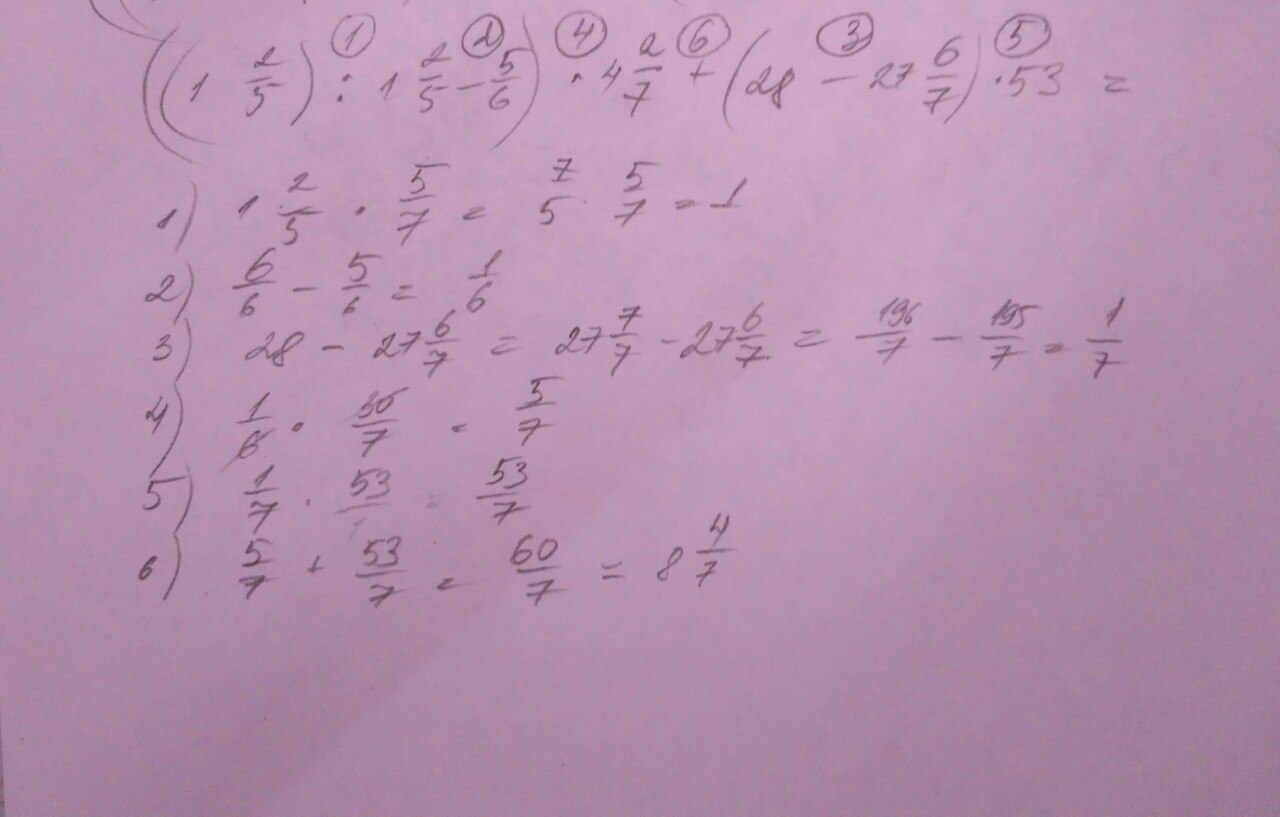 ((1 2/5) : 1 2/5 - 5/6) · 4 2/7 + (28 - 27 6/7) · 53 =
① ② ④ ⑥ ③ ⑤
1) 1 2/5 · 5/7 = 7/5 · 5/7 = 1
2) 6/6 - 5/6 = 1/6
3) 28 - 27 6/7 = 27 7/7 - 27 6/7 = 196/7 - 195/7 = 1/7
4) 1/6 · 30/7 = 5/7
5) 1/7 · 53/1 = 53/7
6) 5/7 + 53/7 = 60/7 = 8 4/7